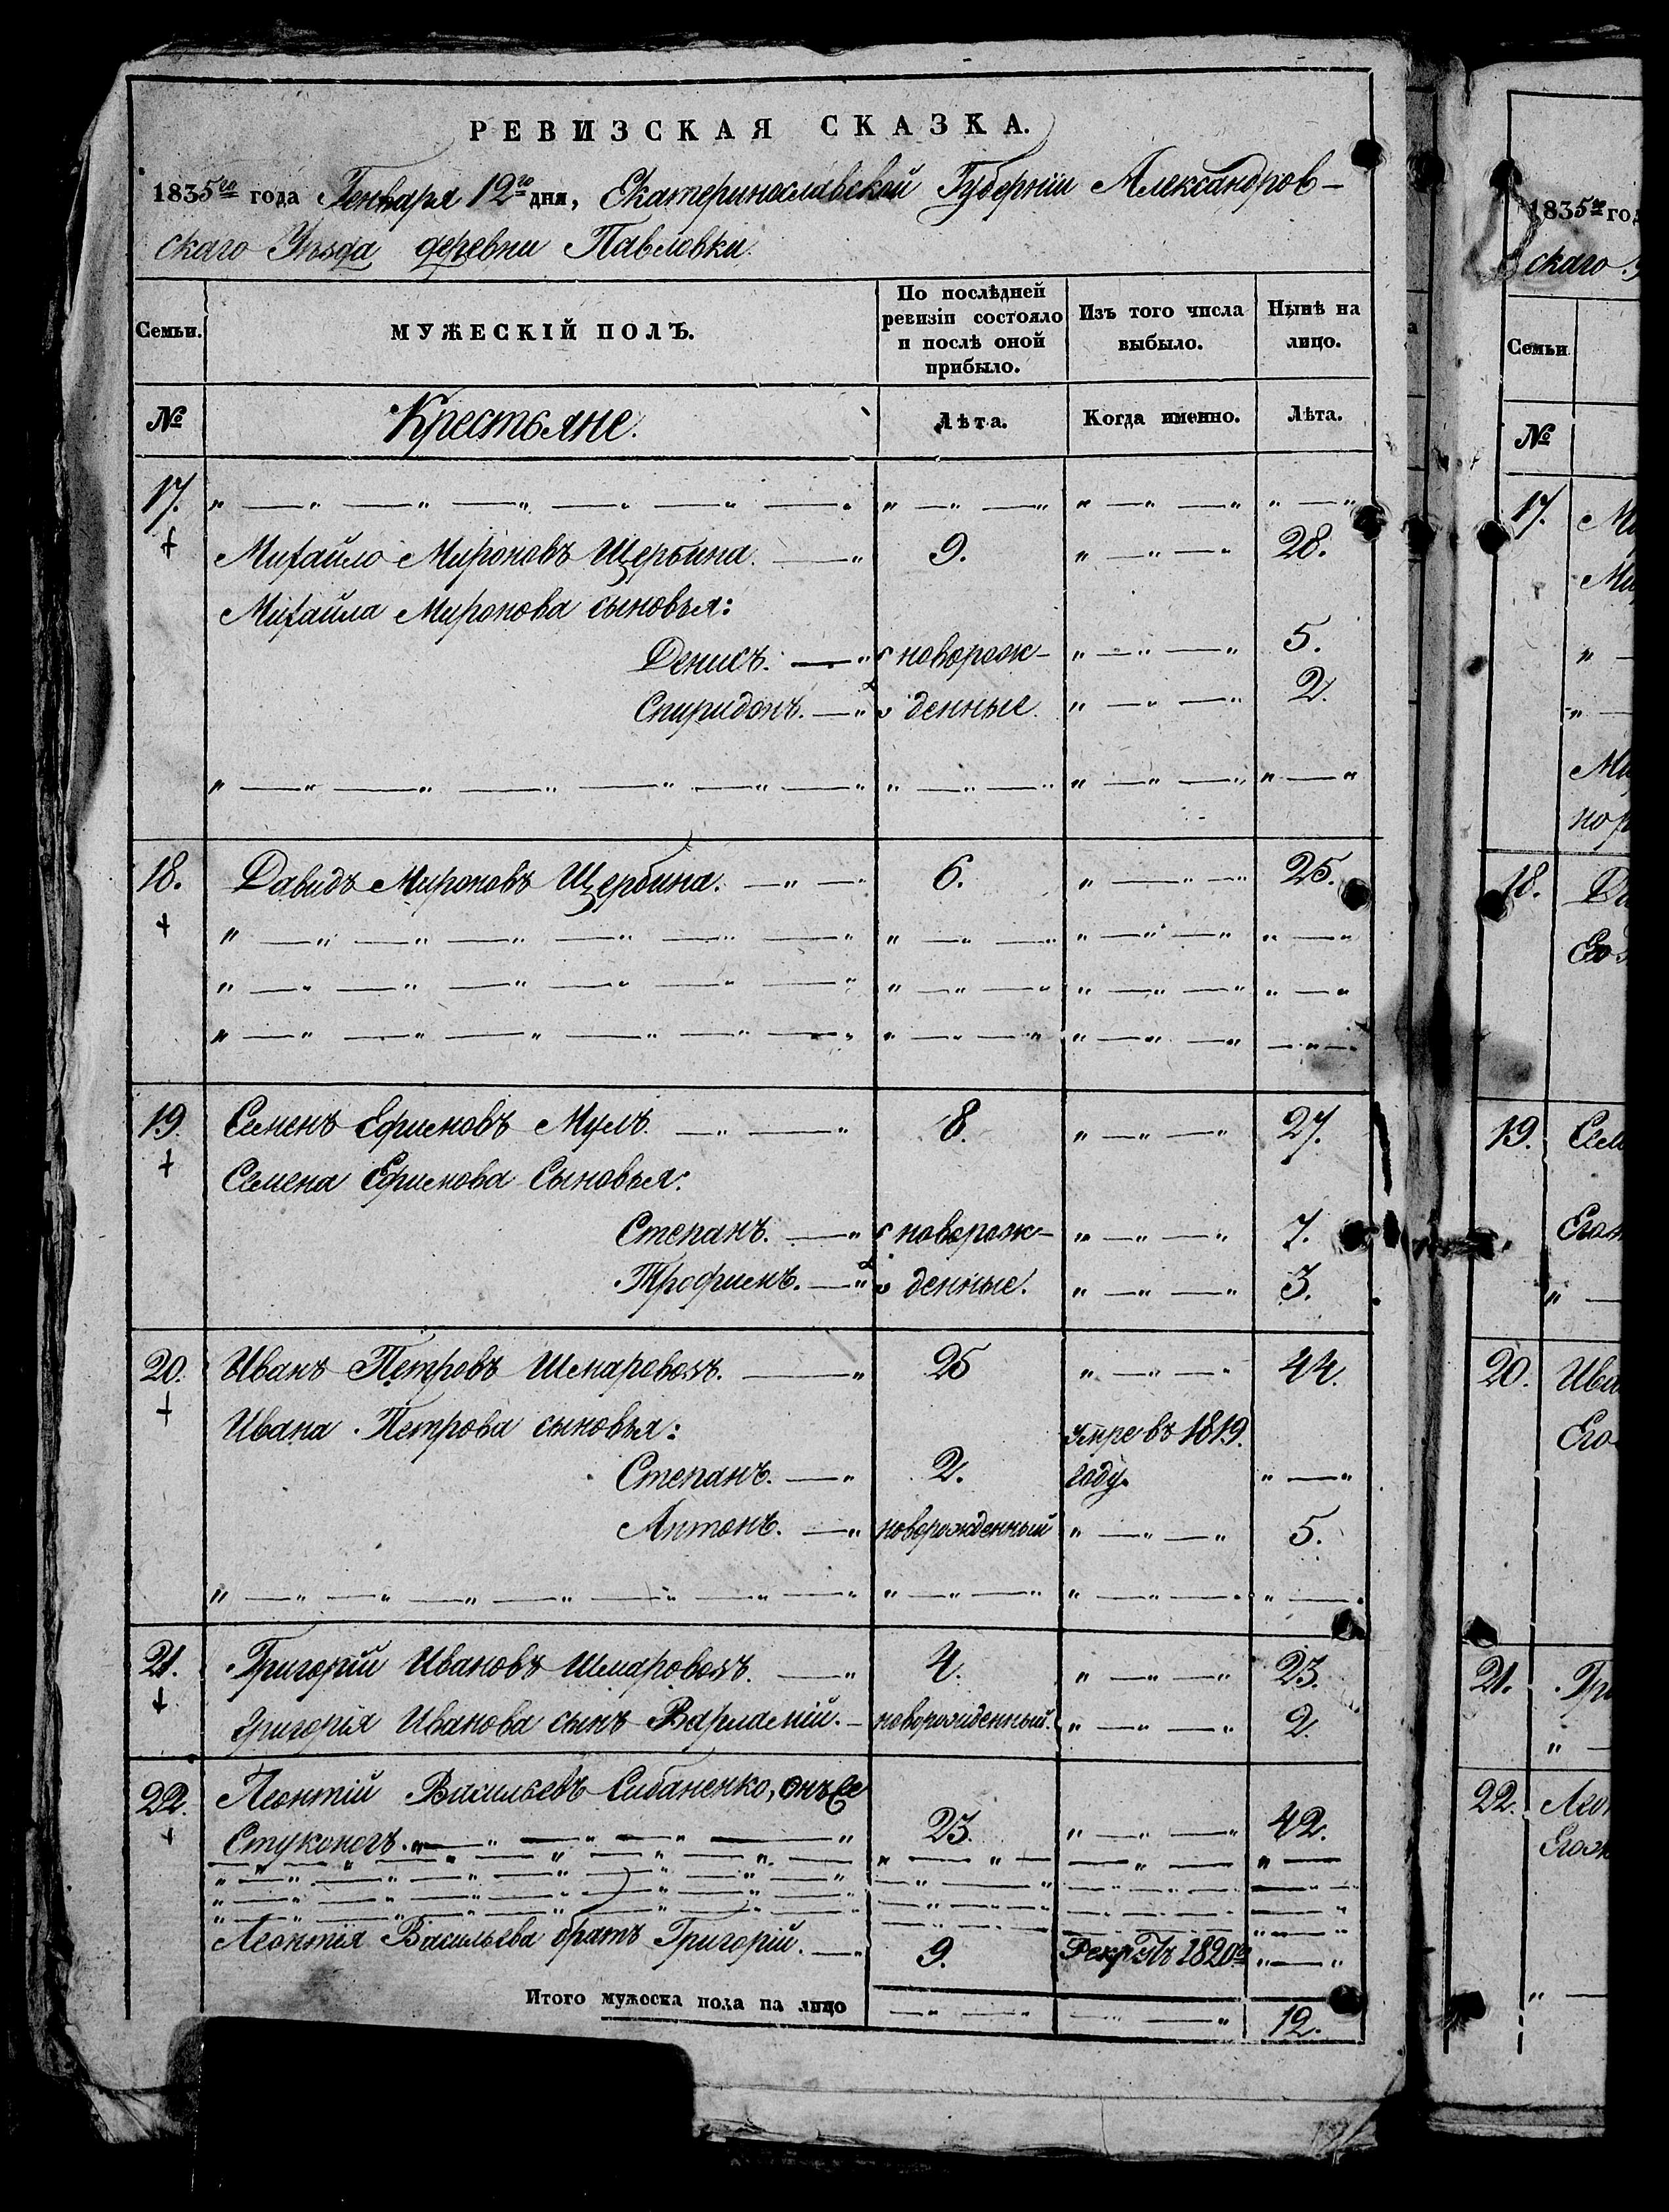 РЕВИЗСКАЯ СКАЗКА.
1835го года Генваря 12го дня, Екатеринославской Губернiи Александров-
скаго Уѣзда деревни Павловки.
Семьи. МУЖЕСКІЙ ПОЛЪ. По послѣдней ревизіи состояло и послѣ оной прибыло. Изъ того числа выбыло. Нынѣ на лицо.
№ Крестьяне. Лѣта. Когда именно. Лѣта.
17. " — " — " — " — " — " — " " — " — " " — " — " " — "
Михайло Мироновъ Щербина. — " 9. " — " — " 28.
Михайла Миронова сыновья:
Денисъ. — " новорож- " — " — " 5.
Спиридонъ. — " денные. " — " — " 2.
" — " — " — " — " — " — " " — " — " " — " — " " — "
18. Давидъ Мироновъ Щербина. — " — " 6. " — " — " 25.
" — " — " — " — " — " — " " — " — " " — " — " " — "
" — " — " — " — " — " — " " — " — " " — " — " " — "
" — " — " — " — " — " — " " — " — " " — " — " — " —
19. Семенъ Ефимовъ Мулъ. — " — " 8. " — " — " 27.
Семена Ефимова Сыновья:
Степанъ. — " новорож- " — " — " 7.
Трофимъ. — " денные. " — " — " 3.
20. Иванъ Петровъ Шмаровозъ. — " 25 " — " — " 44.
Ивана Петрова сыновья:
Степанъ. — " 2. умре въ 1819. году. " — "
Антонъ. — " новорожденный " — " — " 5.
" — " — " — " — " — " — " " — " — " " — " — " " — "
21. Григорій Ивановъ Шмаровозъ. — " 4. " — " — " 23.
Григорія Иванова сынъ Варламій. — новорожденный. " — " — " 2.
22. Леонтій Васильевъ Сибаненко, онъ же
Стуконогъ. " — " — " — " — " 23. " — " — " 42.
Леонтія Васильева братъ Григорій. — " 9. Рекрутъ 1820го " — "
Итого мужеска пола на лицо — " — " — " — " 12.
1835го год
скаго У
Семьи
№
17.
18. Да
19. Сем
20. Ива
21. Гри
22. Лео